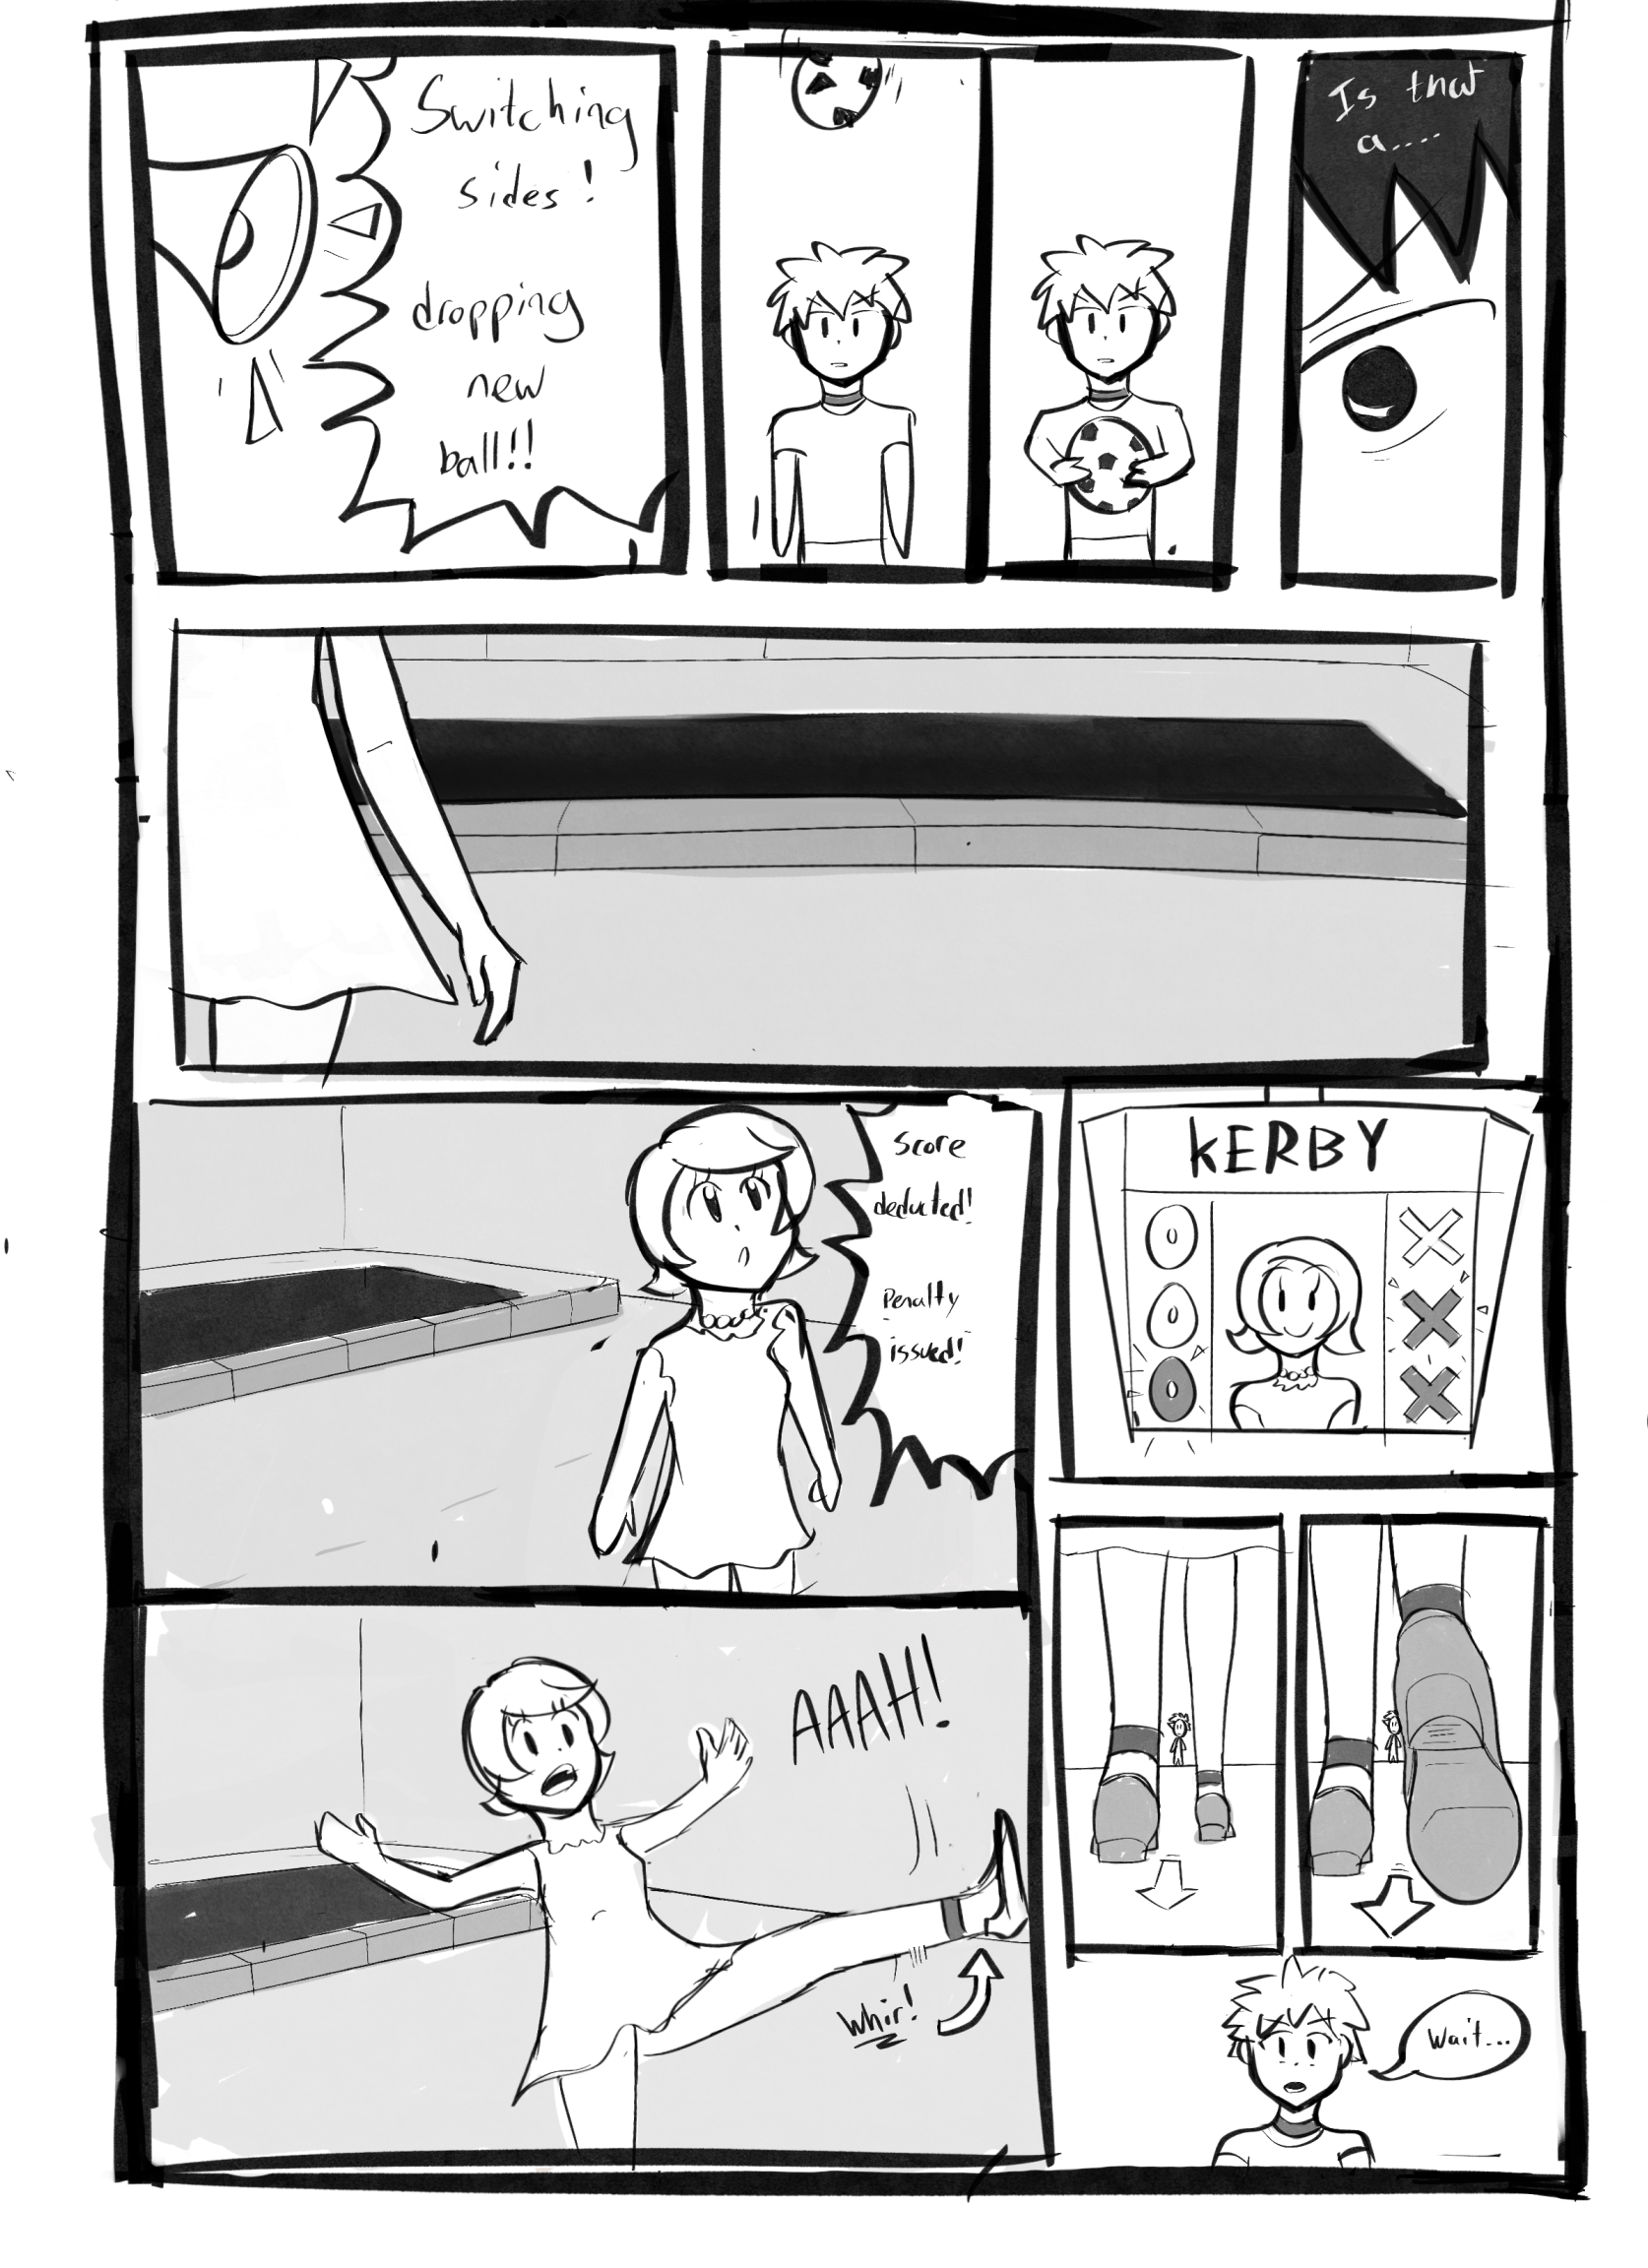 Switching
sides!
dropping
new
ball!!
Is that
a....
Score
deducted!
Penalty
issued!
KERBY
AAAH!
Whir!
Wait...